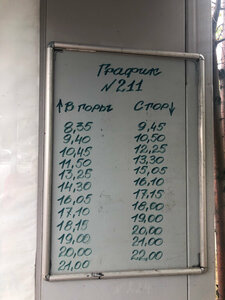 График
№211
↑В горы С гор↓
8,35 9,45
9,40 10,50
10,45 12,25
11,50 13,30
13,25 15,05
14,30 16,10
16,05 17,15
17,10 18,00
18,15 19,00
19,00 20,00
20,00 21,00
21,00 22,00